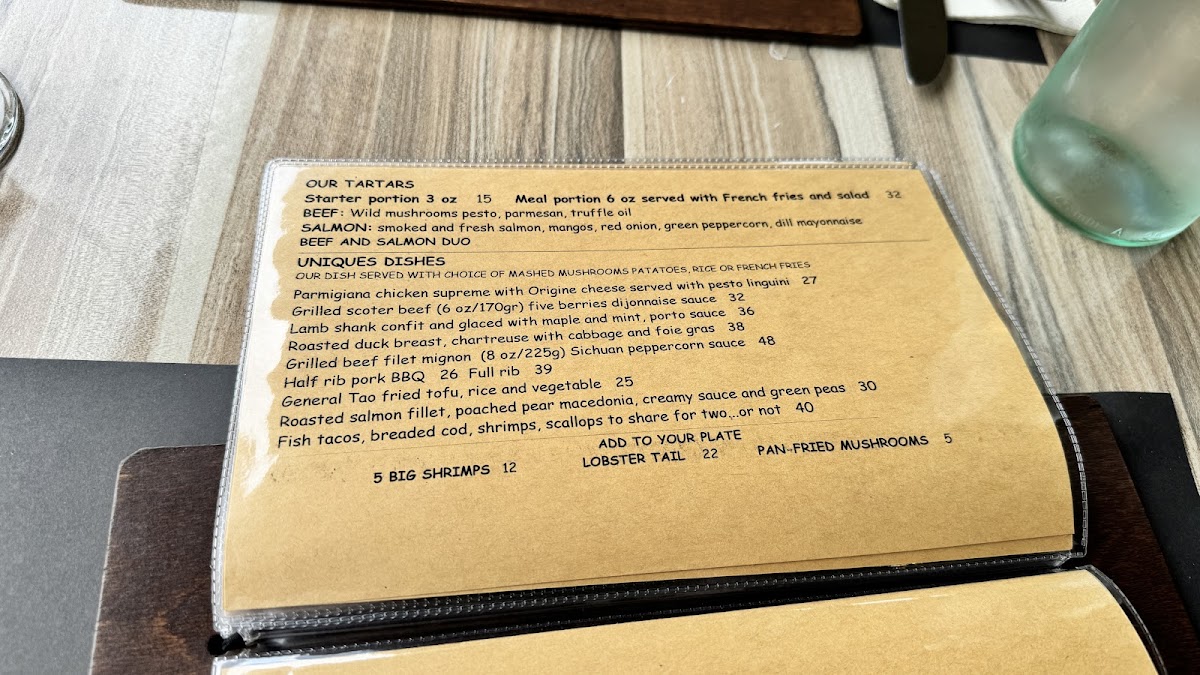 OUR TARTARS
Starter portion 3 oz 15 Meal portion 6 oz served with French fries and salad 32
BEEF: Wild mushrooms pesto, parmesan, truffle oil
SALMON: smoked and fresh salmon, mangos, red onion, green peppercorn, dill mayonnaise
BEEF AND SALMON DUO
UNIQUES DISHES
OUR DISH SERVED WITH CHOICE OF MASHED MUSHROOMS PATATOES, RICE OR FRENCH FRIES
Parmigiana chicken supreme with Origine cheese served with pesto linguini 27
Grilled scoter beef (6 oz/170gr) five berries dijonnaise sauce 32
Lamb shank confit and glaced with maple and mint, porto sauce 36
Roasted duck breast, chartreuse with cabbage and foie gras 38
Grilled beef filet mignon (8 oz/225g) Sichuan peppercorn sauce 48
Half rib pork BBQ 26 Full rib 39
General Tao fried tofu, rice and vegetable 25
Roasted salmon fillet, poached pear macedonia, creamy sauce and green peas 30
Fish tacos, breaded cod, shrimps, scallops to share for two...or not 40
ADD TO YOUR PLATE
5 BIG SHRIMPS 12 LOBSTER TAIL 22 PAN-FRIED MUSHROOMS 5